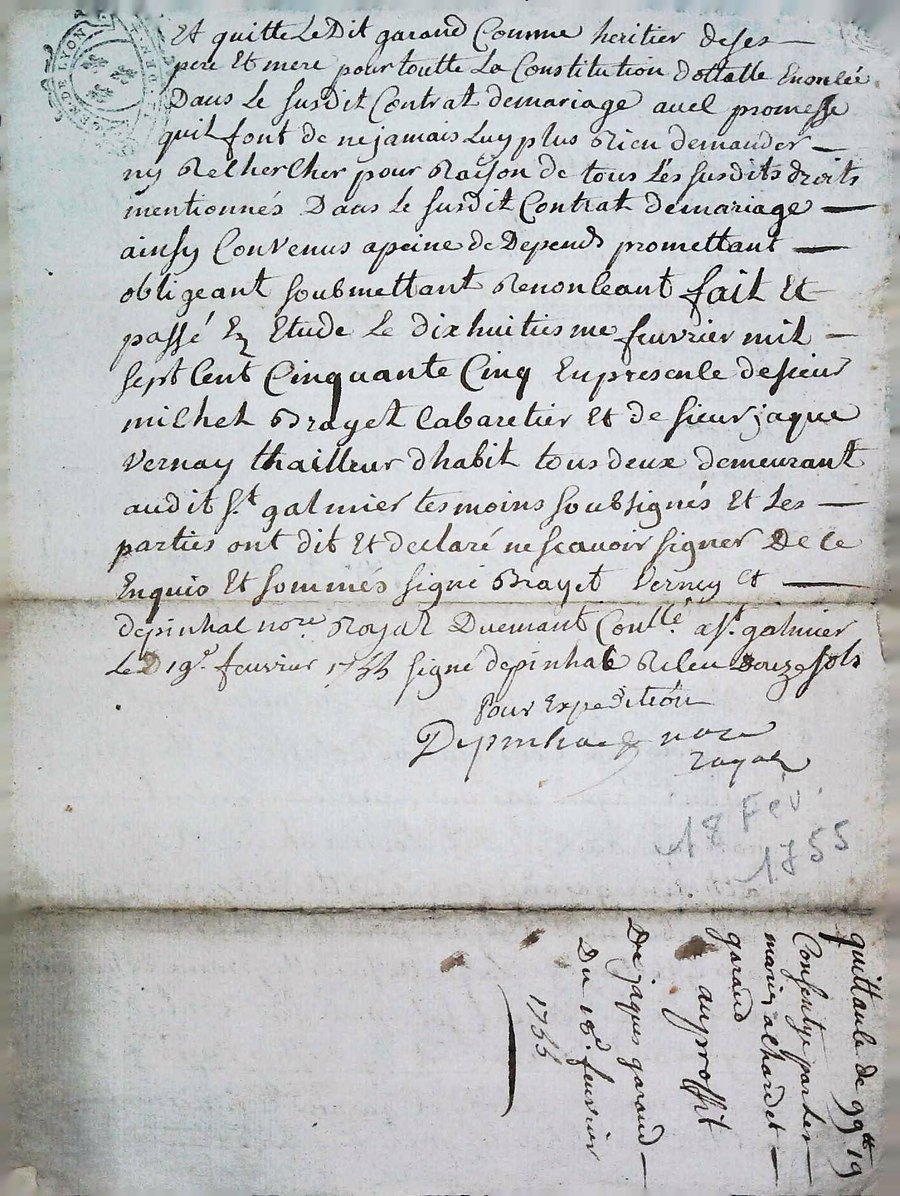 Et quitte Le Dit garand Comme heritier de ses
pere Et mere pour toutte La Constitution dottalle Enoncée
Dans Le susdit Contrat demariage avec promesse
quil font de nejamais Luy plus Rien demander
ny Rechercher pour Raison de tous Les susdits droits
mentionnés Dans Le susdit Contrat demariage
ainsy Convenus apeine de Depends promettant
obligeant soubmettant Renonceant fait Et
passé En Etude Le dixhuitiesme feuvrier mil
sept Cent Cinquante Cinq Enpresence desieur
michel Brayet Cabaretier Et de sieur jaque
Vernay thailleur dhabit tous deux demeurant
audit st. galmier tesmoins soubsignés Et Les
parties ont dit Et declaré nescavoir signer De Ce
Enquis Et sommés signé Brayet Verney Et
depinhac nore. Royal Duemant Conllé. a st. galmier
Le D 19e. feuvrier 1755 signé depinhac Releu Douze sols
Pour Expedition
Depinhac nore
royal
18 Fev.
1755
quittance de 99tt 19
Consentye par les
mariez achardet
garand
auproffit
De jaques garand
Du 18e. feuvrier
1755